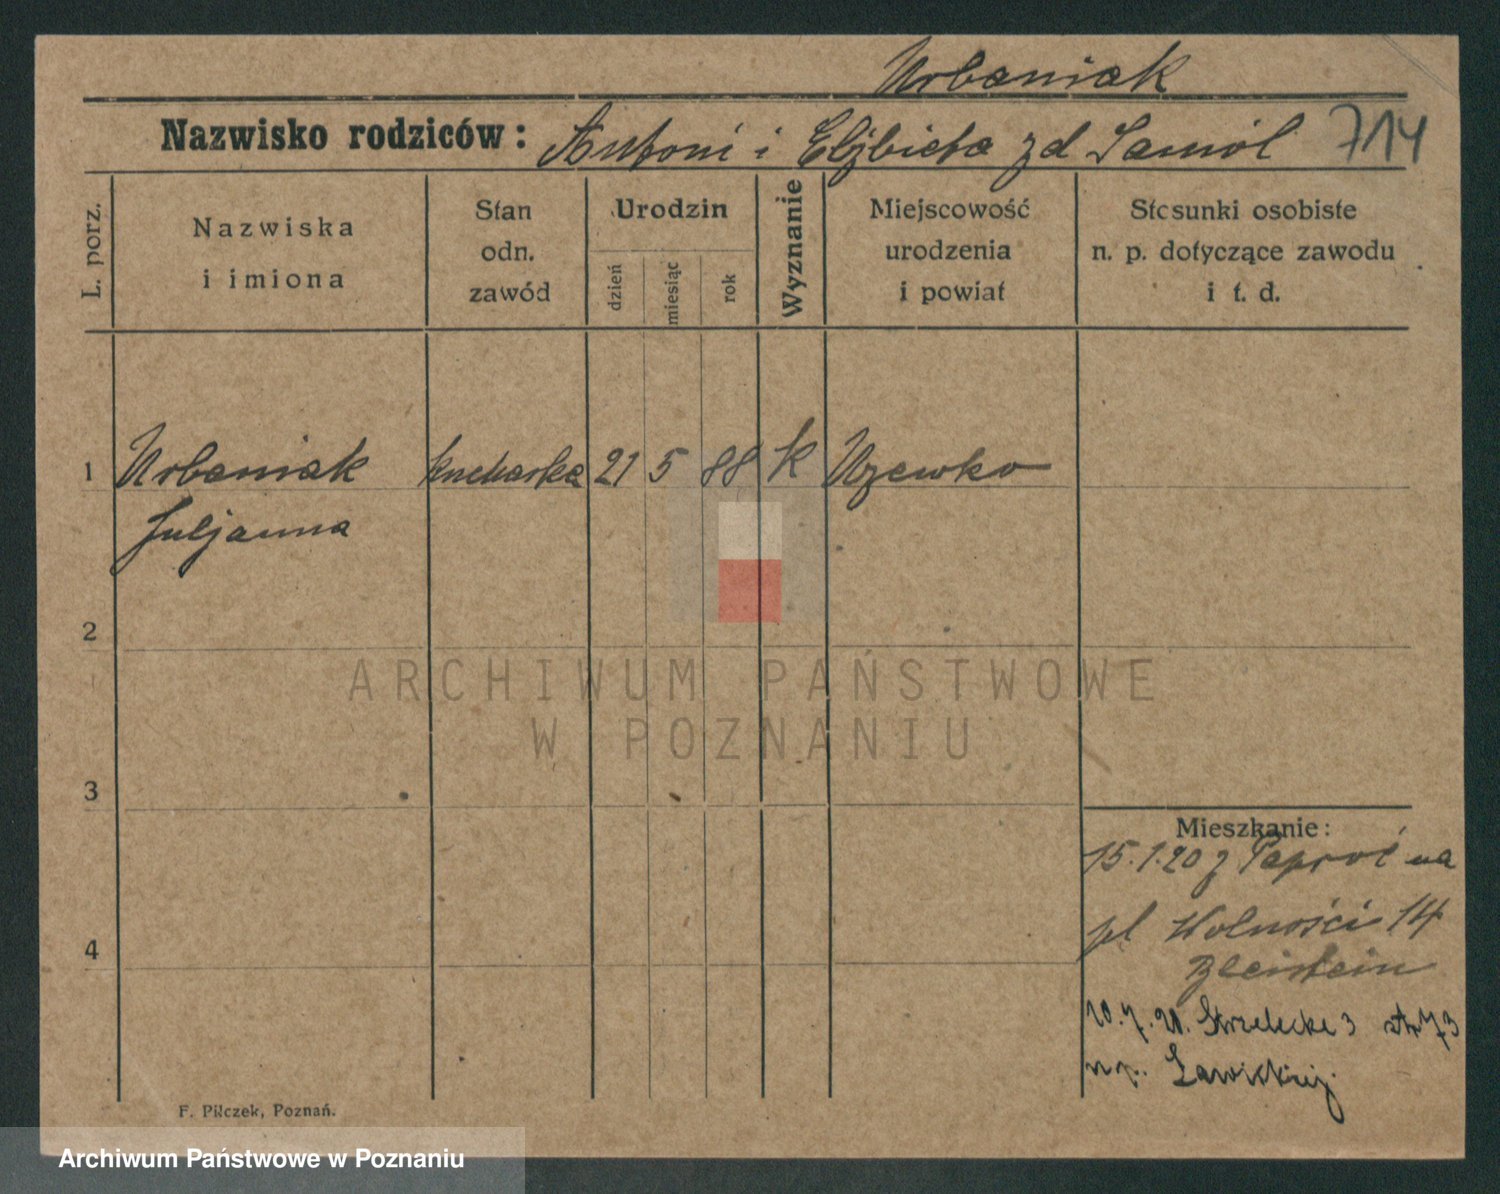 Urbaniak
Nazwisko rodziców: Antoni i Elżbieta zd Samól 714
L. porz.
Nazwiska
i imiona
Stan
odn.
zawód
Urodzin
dzień
miesiąc
rok
Wyznanie
Miejscowość
urodzenia
i powiat
Stosunki osobiste
n. p. dotyczące zawodu
i t. d.
1 Urbaniak kucharka 21 5 88 k Uzewko
Juljanna
2
ARCHIWUM PAŃSTWOWE
W POZNANIU
3
Mieszkanie:
15.1.20 z Paproć na
4
pl Wolności 14
Bleistein
10.7.20. Strzelecka 3
Ławickiej
F. Pilczek, Poznań.
Archiwum Państwowe w Poznaniu